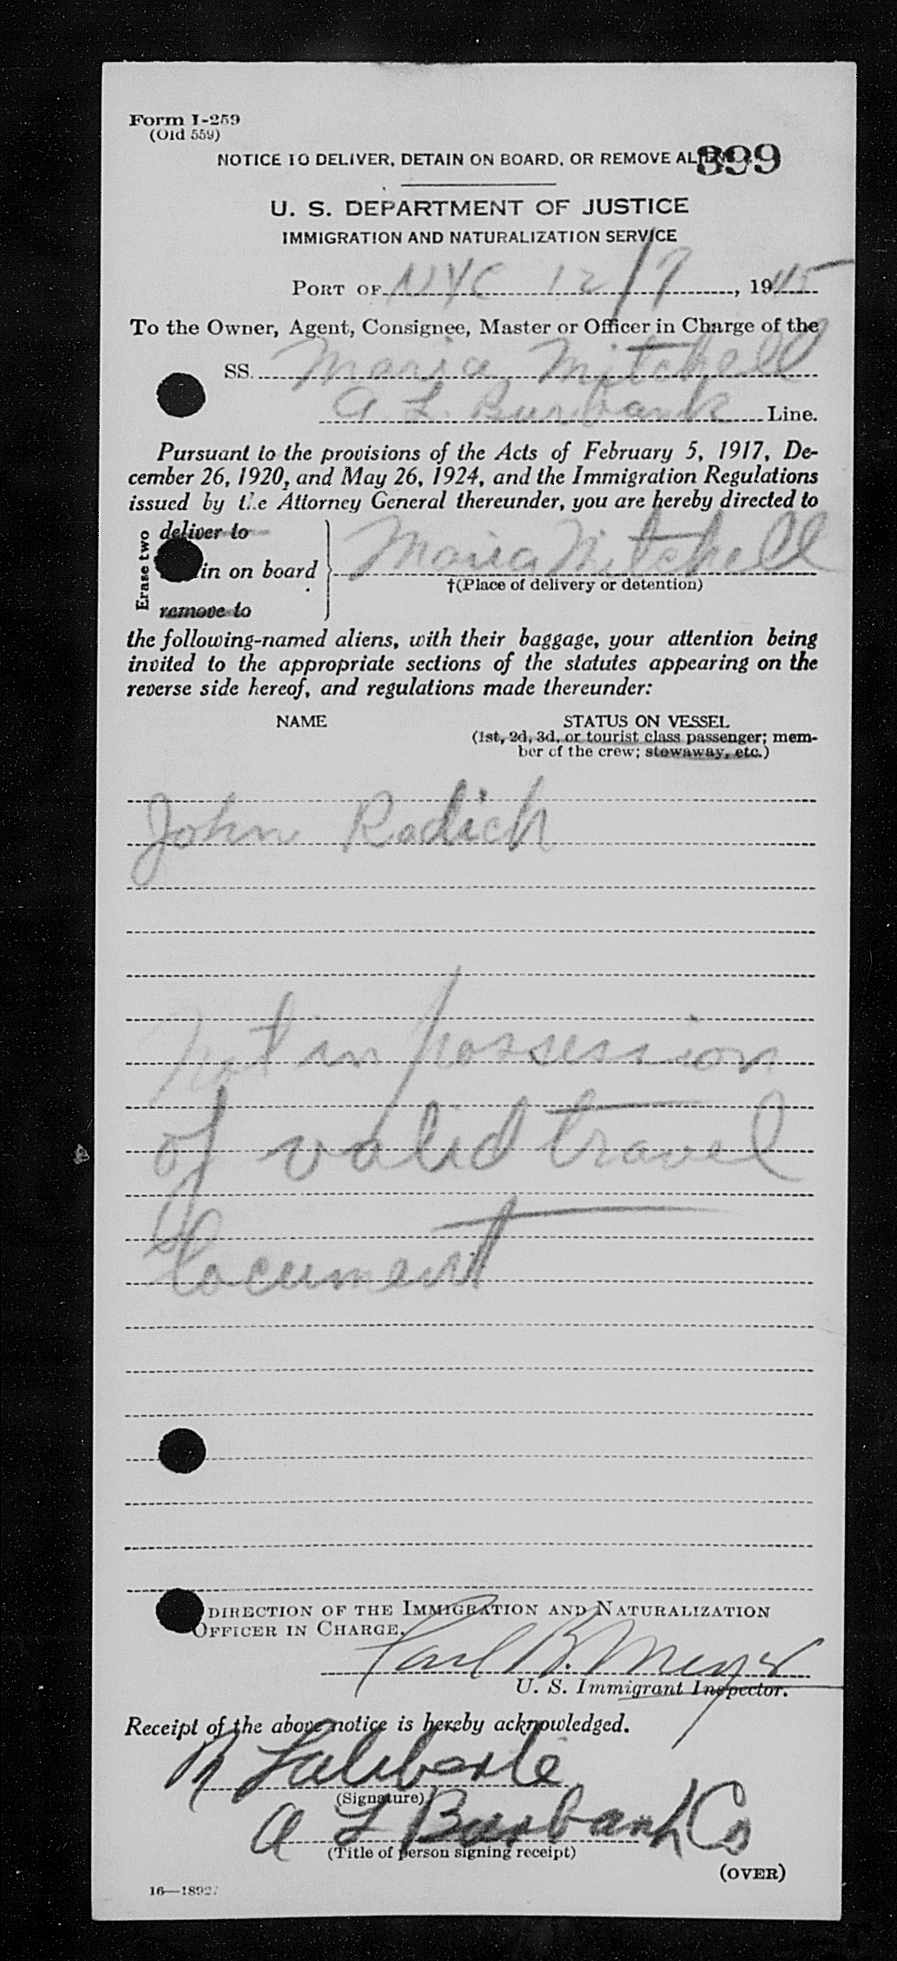 Form I-259
(Old 559)
NOTICE TO DELIVER, DETAIN ON BOARD, OR REMOVE
899
U. S. DEPARTMENT OF JUSTICE
IMMIGRATION AND NATURALIZATION SERVICE
PORT OF NYC 12/7, 1945
To the Owner, Agent, Consignee, Master or Officer in Charge of the
SS. Maria Mitchell
A L Burbank Line.
Pursuant to the provisions of the Acts of February 5, 1917, De-
cember 26, 1920, and May 26, 1924, and the Immigration Regulations
issued by the Attorney General thereunder, you are hereby directed to
Erase two
deliver to
in on board Maria Mitchell
†(Place of delivery or detention)
remove to
the following-named aliens, with their baggage, your attention being
invited to the appropriate sections of the statutes appearing on the
reverse side hereof, and regulations made thereunder:
NAME STATUS ON VESSEL
(1st, 2d, 3d, or tourist class passenger; mem-
ber of the crew; stowaway, etc.)
John Radich
Not in possession
of valid travel
document
DIRECTION OF THE IMMIGRATION AND NATURALIZATION
OFFICER IN CHARGE.
B. Meyer
U. S. Immigrant Inspector.
Receipt of the above notice is hereby acknowledged.
R Laliberte
(Signature)
A L Burbank Co
(Title of person signing receipt)
(OVER)